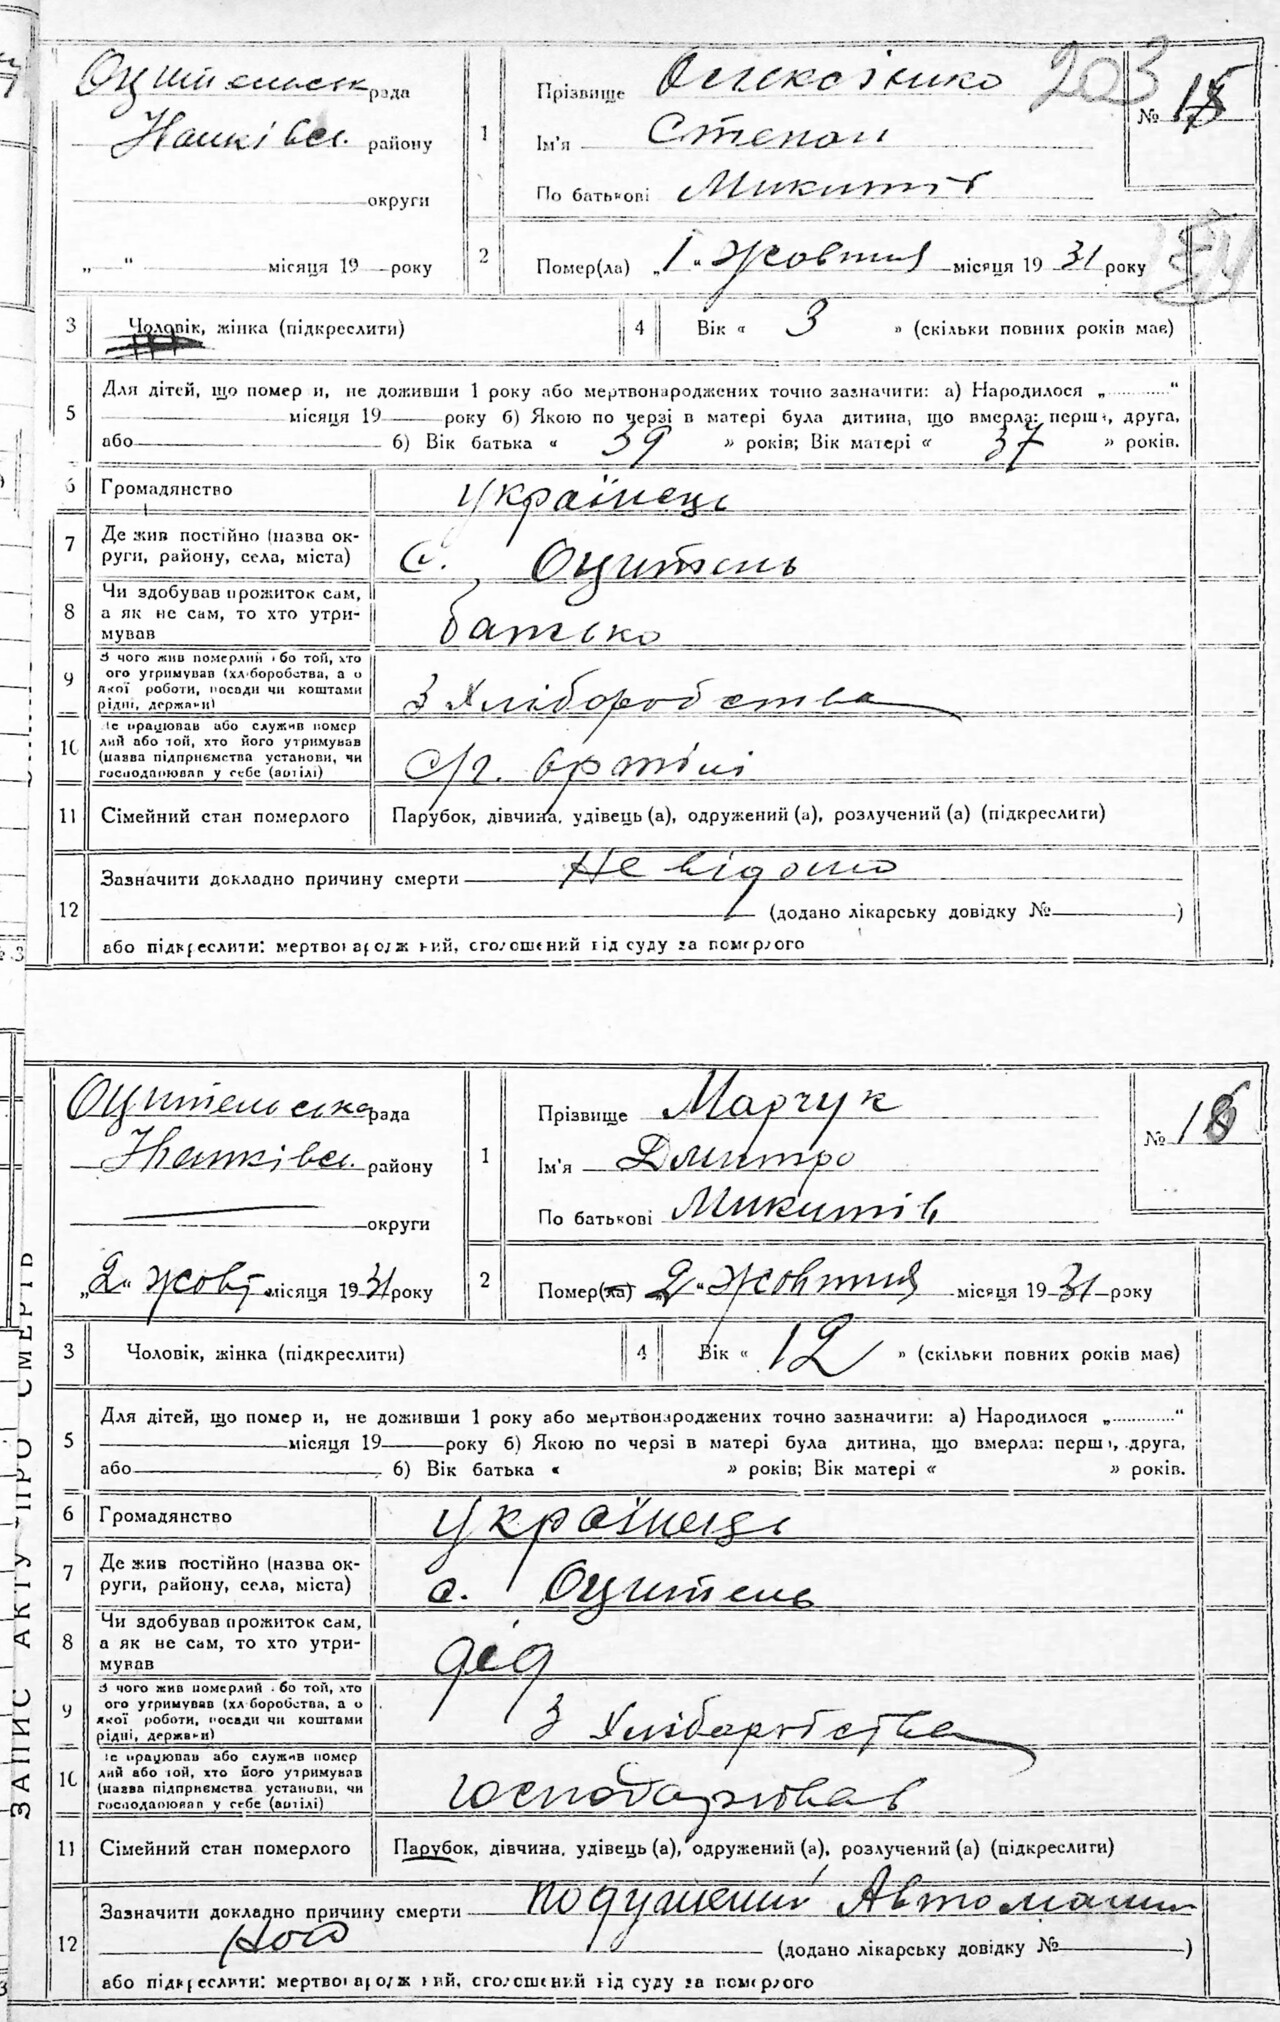 Оцительська рада
Прізвище Олексієнко
203
№ 15
району
1
Ім'я Степан
округи
По батькові Микитів
„ “ місяця 19 року
2
Помер(ла) „1“ Жовтня місяця 1931 року
3
Чоловік, жінка (підкреслити)
4
Вік « 3 » (скільки повних років має)
5
Для дітей, що помер и, не доживши 1 року або мертвонароджених точно зазначити: а) Народилося „ “
місяця 19 року б) Якою по черзі в матері була дитина, що вмерла: перша, друга,
або 6) Вік батька « 39 » років; Вік матері « 37 » років.
6
Громадянство
українець
7
Де жив постійно (назва ок-
руги, району, села, міста)
с. Оцитель
8
Чи здобував прожиток сам,
а як не сам, то хто утри-
мував
батько
9
З чого жив померлий або той, хто
ого утримував (хліборобства, а о
якої роботи, посади чи коштами
рідні, держави)
З Хліборобства
10
Де працював або служив помер
лий або той, хто його утримував
(назва підприємства установи, чи
господарював у себе (артілі)
С/г. артілі
11
Сімейний стан померлого
Парубок, дівчина, удівець (а), одружений (а), розлучений (а) (підкреслити)
12
Зазначити докладно причину смерти Не відомо
(додано лікарську довідку № )
або підкреслити: мертвонароджений, оголошений від суду за померлого
Оцительська рада
Прізвище Марчук
№ 16
району
1
Ім'я Дмитро
округи
По батькові Микитів
„2“ жовт. місяця 1931 року
2
Помер(ла) „2“ Жовтня місяця 1931 року
3
Чоловік, жінка (підкреслити)
4
Вік « 12 » (скільки повних років має)
5
Для дітей, що помер и, не доживши 1 року або мертвонароджених точно зазначити: а) Народилося „ “
місяця 19 року б) Якою по черзі в матері була дитина, що вмерла: перша, друга,
або 6) Вік батька « » років; Вік матері « » років.
6
Громадянство
українець
7
Де жив постійно (назва ок-
руги, району, села, міста)
с. Оцитель
8
Чи здобував прожиток сам,
а як не сам, то хто утри-
мував
дід
9
З чого жив померлий або той, хто
ого утримував (хліборобства, а о
якої роботи, посади чи коштами
рідні, держави)
З Хліборобства
10
Де працював або служив помер
лий або той, хто його утримував
(назва підприємства установи, чи
господарював у себе (артілі)
господарював
11
Сімейний стан померлого
Парубок, дівчина, удівець (а), одружений (а), розлучений (а) (підкреслити)
12
Зазначити докладно причину смерти подушений Автомаши
ною
(додано лікарську довідку № )
або підкреслити: мертвонароджений, оголошений від суду за померлого
ЗАПИС АКТУ ПРО СМЕРТЬ